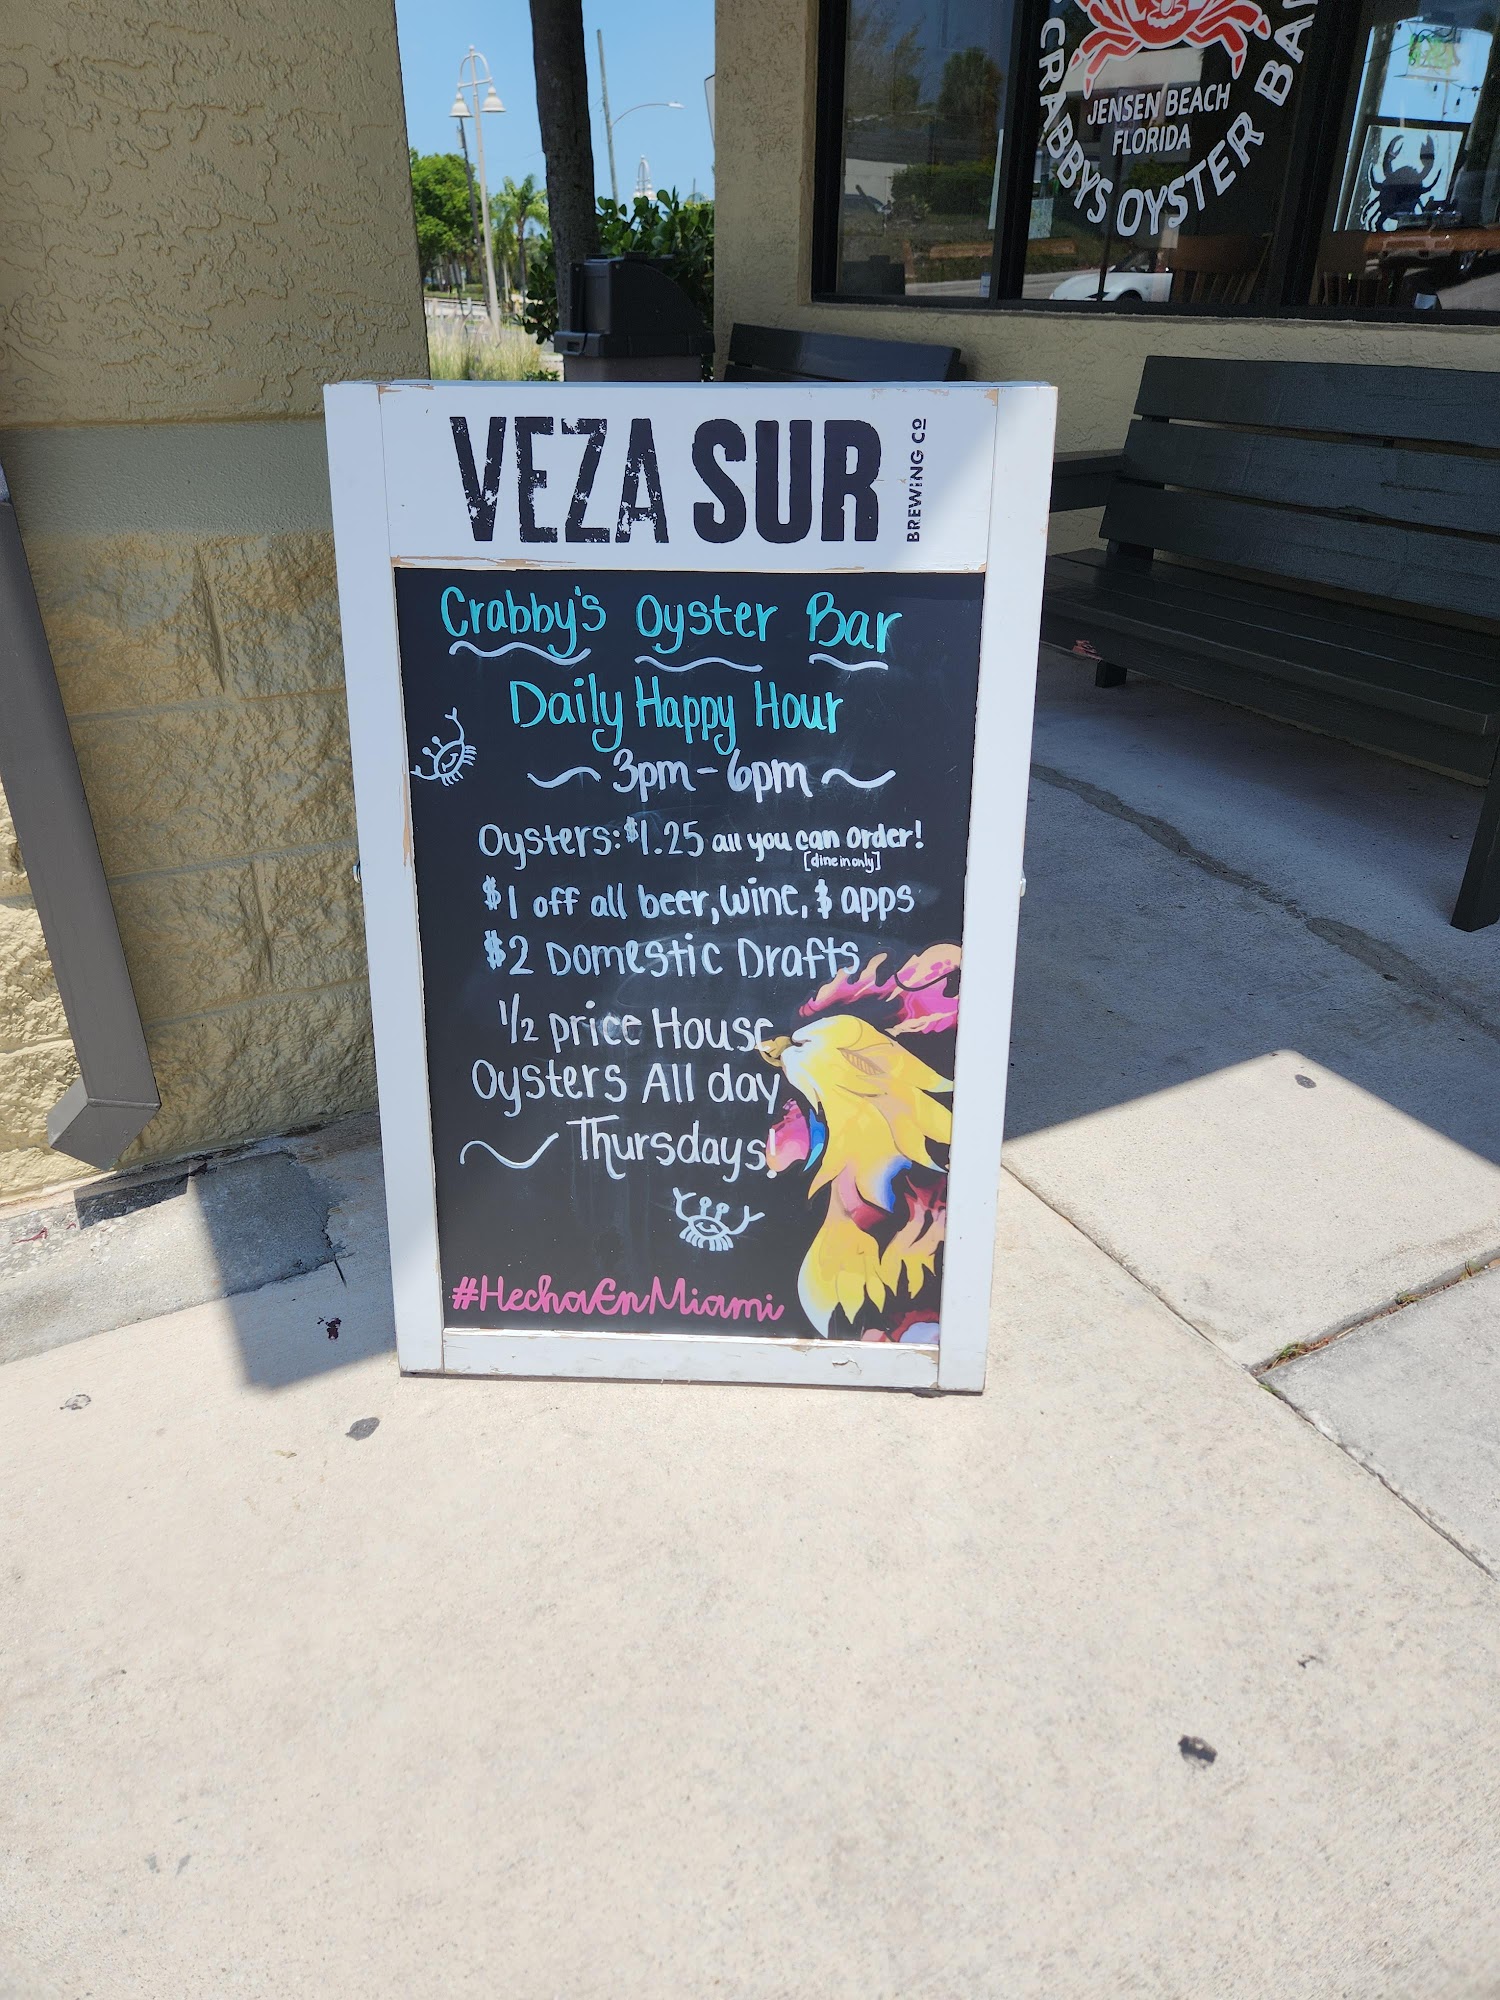 CRABBYS OYSTER BA
JENSEN BEACH
FLORIDA
VEZA SUR
BREWING Co
Crabby's Oyster Bar
Daily Happy Hour
3pm - 6pm
Oysters: $1.25 all you can order!
[dine in only]
$1 off all beer, wine, & apps
$2 Domestic Drafts
1/2 price House
Oysters All day
Thursdays!
#HechaEnMiami